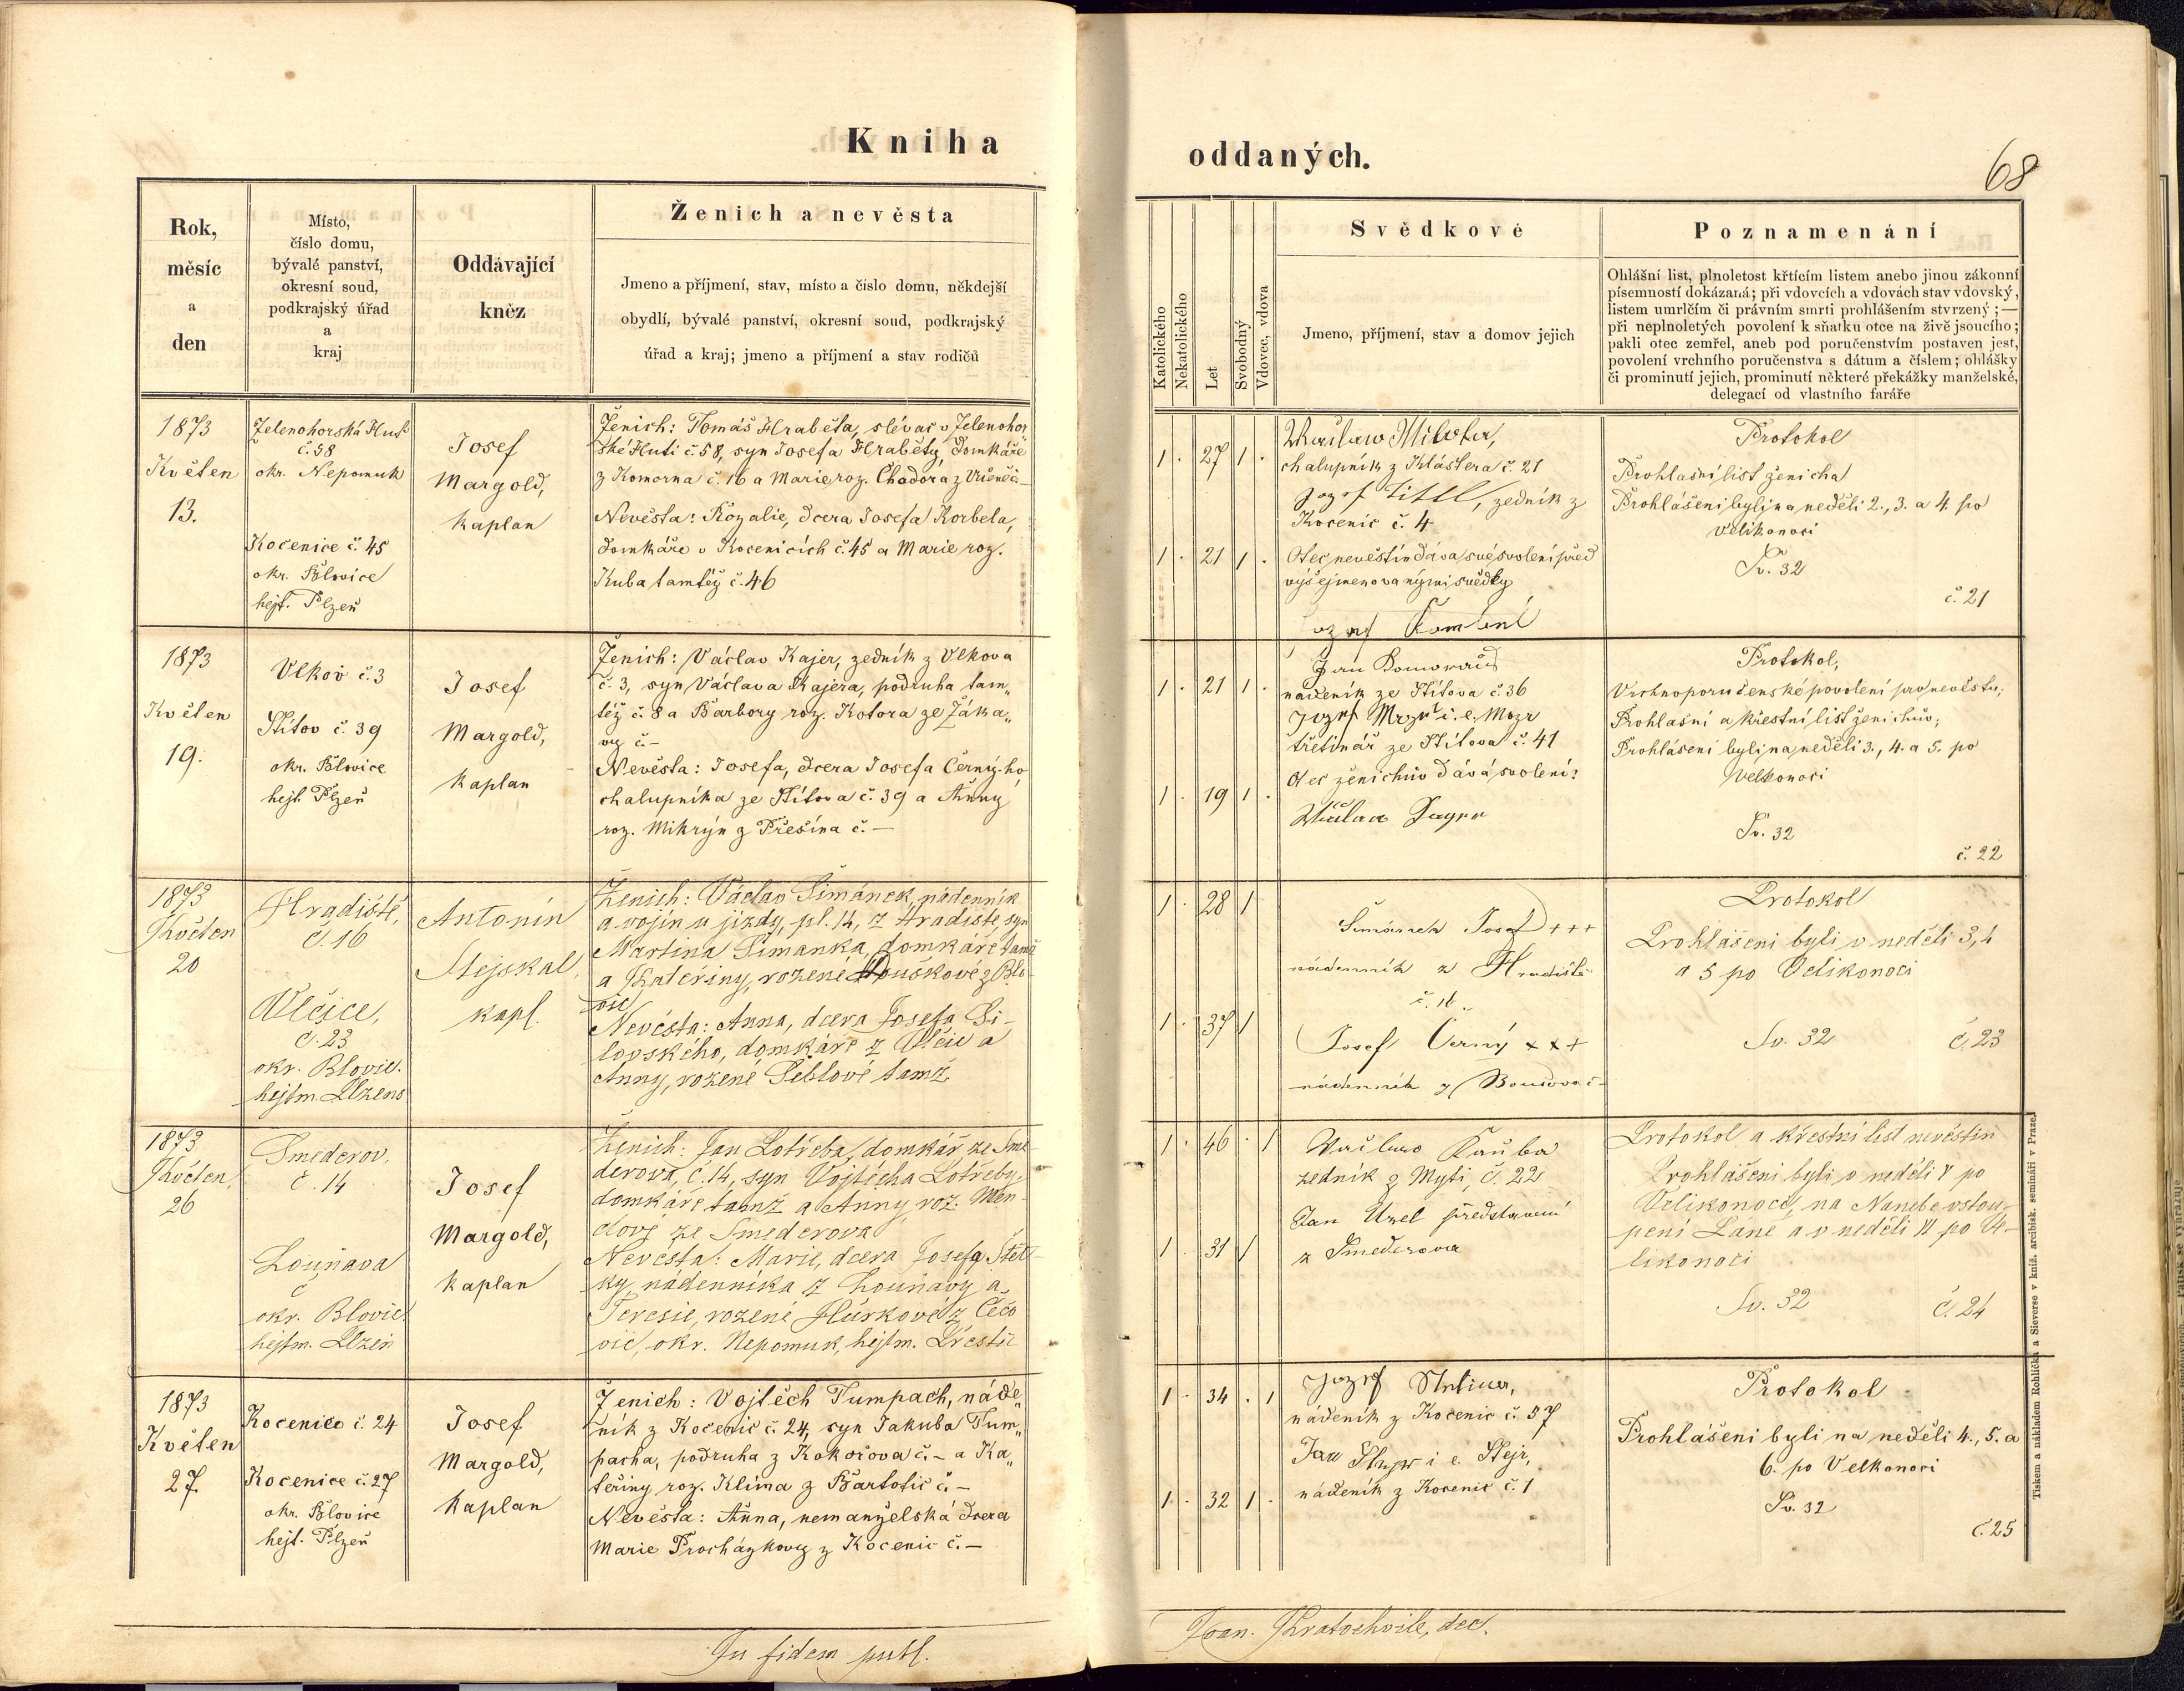 Kniha
oddaných.
68
Rok,
měsíc
a
den
Místo,
číslo domu,
bývalé panství,
okresní soud,
podkrajský úřad
a
kraj
Oddávající
kněz
Ženich a nevěsta
Jmeno a příjmení, stav, místo a číslo domu, někdejší
obydlí, bývalé panství, okresní soud, podkrajský
úřad a kraj; jmeno a příjmení a stav rodičů
Katolického
Nekatolického
Let
Svobodný
Vdovec, vdova
Svědkové
Jmeno, příjmení, stav a domov jejich
Poznamenání
Ohlášní list, plnoletost křtícím listem anebo jinou zákonní
písemností dokázaná; při vdovcích a vdovách stav vdovský,
listem umrlčím či právním smrti prohlášením stvrzený; —
při neplnoletých povolení k sňatku otce na živě jsoucího;
pakli otec zemřel, aneb pod poručenstvím postaven jest,
povolení vrchního poručenstva s dátum a číslem; ohlášky
či prominutí jejich, prominutí některé překážky manželské,
delegací od vlastního faráře
1873
Květen
13.
Zelenohorská Huť
č. 58
okr. Nepomuk
Kocenice č. 45
okr. Blovice
hejt. Plzeň
Josef
Margold,
kaplan
Ženich: Tomáš Hraběta, slévač v Zelenohor„
ské Huti č. 58, syn Josefa Hraběty, domkáře
z Komorna č. 16 a Marie roz. Chodora z
Nevěsta: Rozalie, dcera Josefa Korbela,
domkáře v Kocenicích č. 45 a Marie roz.
Kuba tamtéž č. 46
1 . 27 1 .
1 . 21 1 .
chalupník z Kláštera č. 21
Jozef Tittl, zedník z
Kocenic č. 4
Otec nevěstin dáva své svolení před
výšejmenovanými svědky
Protokol
Prohlašní list ženicha
Prohlášeni byli na neděli 2., 3. a 4. po
Velikonoci
Sv. 32
č. 21
1873
Květen
19.
Vlkov č. 3
Štítov č. 39
okr. Blovice
hejt. Plzeň
Josef
Margold,
kaplan
Ženich: Václav Kajer, zedník z Vlkova
č. 3, syn Václava Kajera, podruha tam„
též č. 8 a Barbory roz. Kotora ze Žáka„
vy č. –
Nevěsta: Josefa, dcera Josefa Černý-ho
chalupníka ze Štítova č. 39 a Anny
roz. Mikrýn z Přešína č. —
1 . 21 1 .
1 . 19 1 .
nádeník ze Štítova č. 36
Jozef Mozr i. e. Mozr
třetinář ze Štítova č. 41
Otec ženichův dává svolení:
Protokol,
Vrchnoporučenské povolení pro nevěstu;
Prohlašní a křestní list ženichův;
Prohlášeni byli na neděli 3., 4. a 5. po
Velkonoci
Sv. 32
č. 22
1873
Květen
20
Hradiště,
č. 16
Vlčice,
č. 23
okr. Blovic.
hejtm. Plzens
Antonín
Stejskal,
kapl.
Ženich: Václav Šimánek, nádenník
a vojín u jízdy, pl. 14, z Hradiště, syn
Martina Šimanka, domkáře tamž
a Kateřiny, rozené Douškové z Blo-
vic
Nevěsta: Anna, dcera Josefa Si-
lovského, domkáře z Vlčic a
Anny, rozené Šeblové tamž
1 . 28 1
1 . 37 1
Šimánek Josef +++
nádenník z Hradiště
č. 16.
Josef Černý + + +
nádenník z
Protokol
Prohlášeni byli v neděli 3, 4
a 5 po Velikonoci
Sv. 32
č. 23
1873
Květen,
26
Smederov.
č. 14
Louňava
č
okr. Blovic.
hejtm. Plzeň
Josef
Margold,
kaplan
Ženich: Jan Lotřeba, domkář ze Sme-
derova, č. 14, syn Vojtěcha Lotřeby,
domkáře tamž a Anny, roz. Men-
clové ze Smederova
Nevěsta: Marie, dcera Josefa Štět-
ky, nádenníka z Louňavy a
Teresie, rozené Hůrkové z Čečo
vic, okr. Nepomuk, hejtm. Přestic
1 . 46 . 1
1 . 31 1
Vaclaw Kauba
zedník z Myti, č. 22
Jan Uzel představení
z Smederova
Protokol a křestní list nevěstin
Prohlášeni byli v neděli V po
Velikonoci, na Nanebevstou-
pení Páně a v neděli VI po Ve-
likonoci
Sv. 32
č. 24
1873
Květen
27.
Kocenice č. 24
Kocenice č. 27
okr. Blovice
hejt. Plzeň
Josef
Margold,
kaplan
Ženich: Vojtěch Tumpach, náde„
ník z Kocenic č. 24, syn Jakuba Tum„
pacha, podruha z Kokořova č. – a Ka„
teřiny roz. Klima z Bartotic č. –
Nevěsta: Anna, nemanželská dcera
Marie Procházkovy z Kocenic č. —
1 . 34 . 1
1 . 32 1 .
nádeník z Kocenic č. 57
Jan Štejr i e. Stejr,
nádeník z Kocenic č. 1
Protokol
Prohlášeni byli na neděli 4., 5. a
6. po Velkonoci
Sv. 32
č. 25
In fidem publ.
Joan. Kratochvile, dec.
Tiskem a nákladem Rohlíčka a Sieverse v kníž. arcibisk. semináři v Praze.